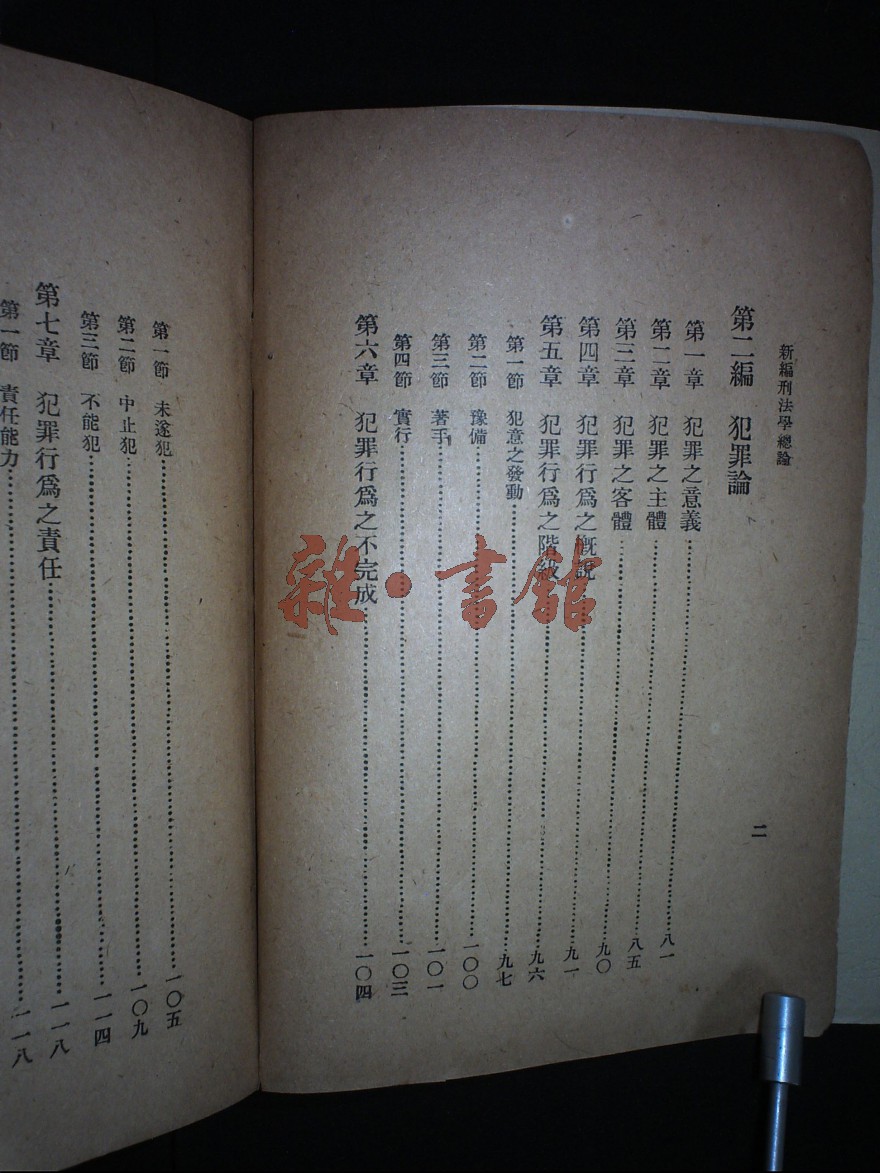 新編刑法學總論
二
第二編 犯罪論
第一章 犯罪之意義……八一
第二章 犯罪之主體……八五
第三章 犯罪之客體……九〇
第四章 犯罪行爲之概說……九一
第五章 犯罪行爲之階級……九六
第一節 犯意之發動……九七
第二節 豫備……一〇〇
第三節 著手……一〇一
第四節 實行……一〇三
第六章 犯罪行爲之不完成……一〇四
第一節 未遂犯……一〇五
第二節 中止犯……一〇九
第三節 不能犯……一一四
第七章 犯罪行爲之責任……一一八
第一節 責任能力……一一八
雜·書館